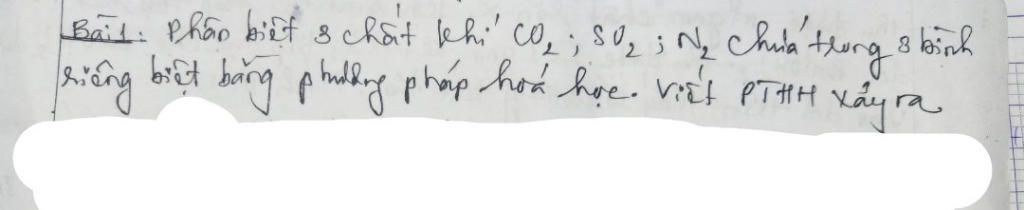 Bài 1: Phân biệt 3 chất khí CO₂; SO₂; N₂ chứa trong 3 bình
riêng biệt bằng phương pháp hoá học. Viết PTHH xảy ra